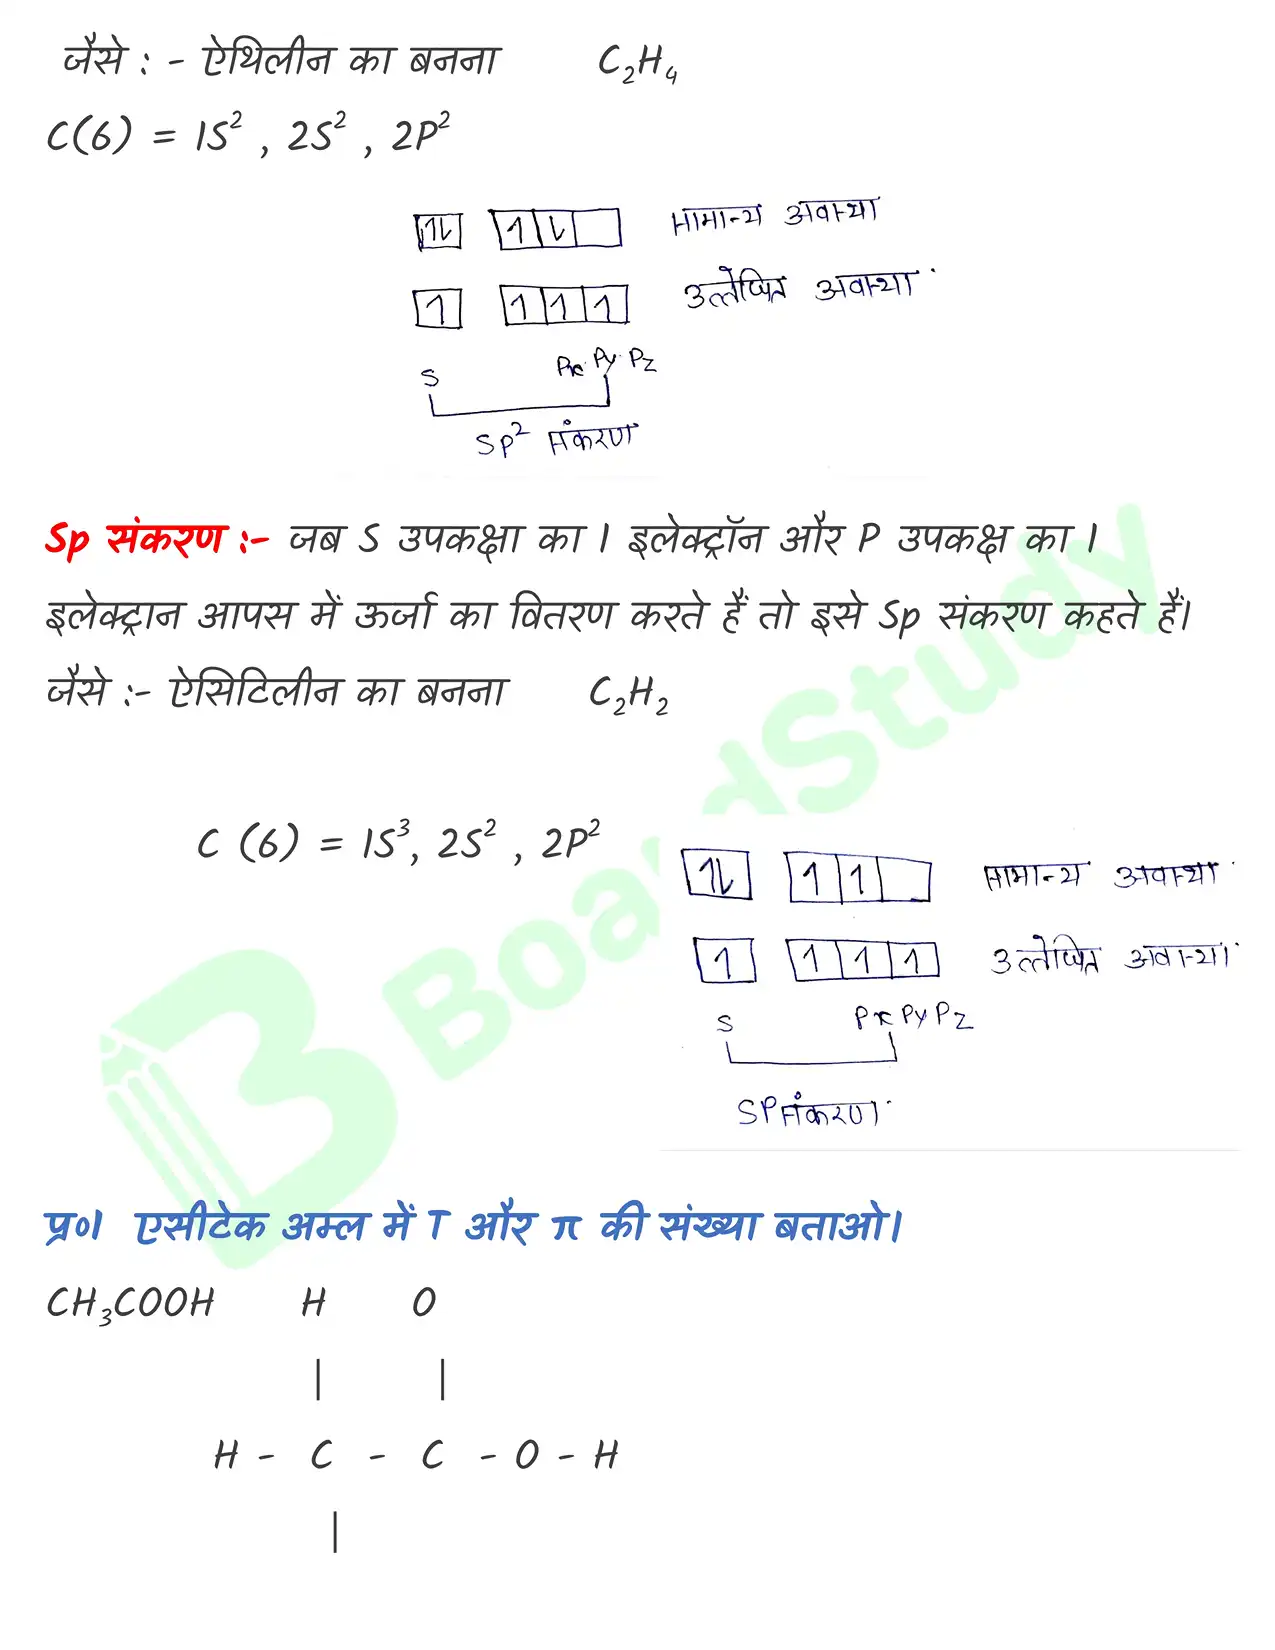 जैसे : - ऐथिलीन का बनना C₂H₄
C(6) = 1S² , 2S² , 2P²
1L 1 L सामान्य अवस्था
1 1 1 1 उत्तेजित अवस्था
S Px Py Pz
Sp² संकरण
Sp संकरण :- जब S उपकक्षा का 1 इलेक्ट्रॉन और P उपकक्ष का 1
इलेक्ट्रान आपस में ऊर्जा का वितरण करते हैं तो इसे Sp संकरण कहते हैं।
जैसे :- ऐसिटिलीन का बनना C₂H₂
C (6) = 1S³, 2S² , 2P²
1L 1 1 सामान्य अवस्था
1 1 1 1 उत्तेजित अवस्था
S Px Py Pz
SP संकरण
BoardStudy
प्र०1 एसीटेक अम्ल में T और π की संख्या बताओ।
CH₃COOH H O
| |
H - C - C - O - H
|